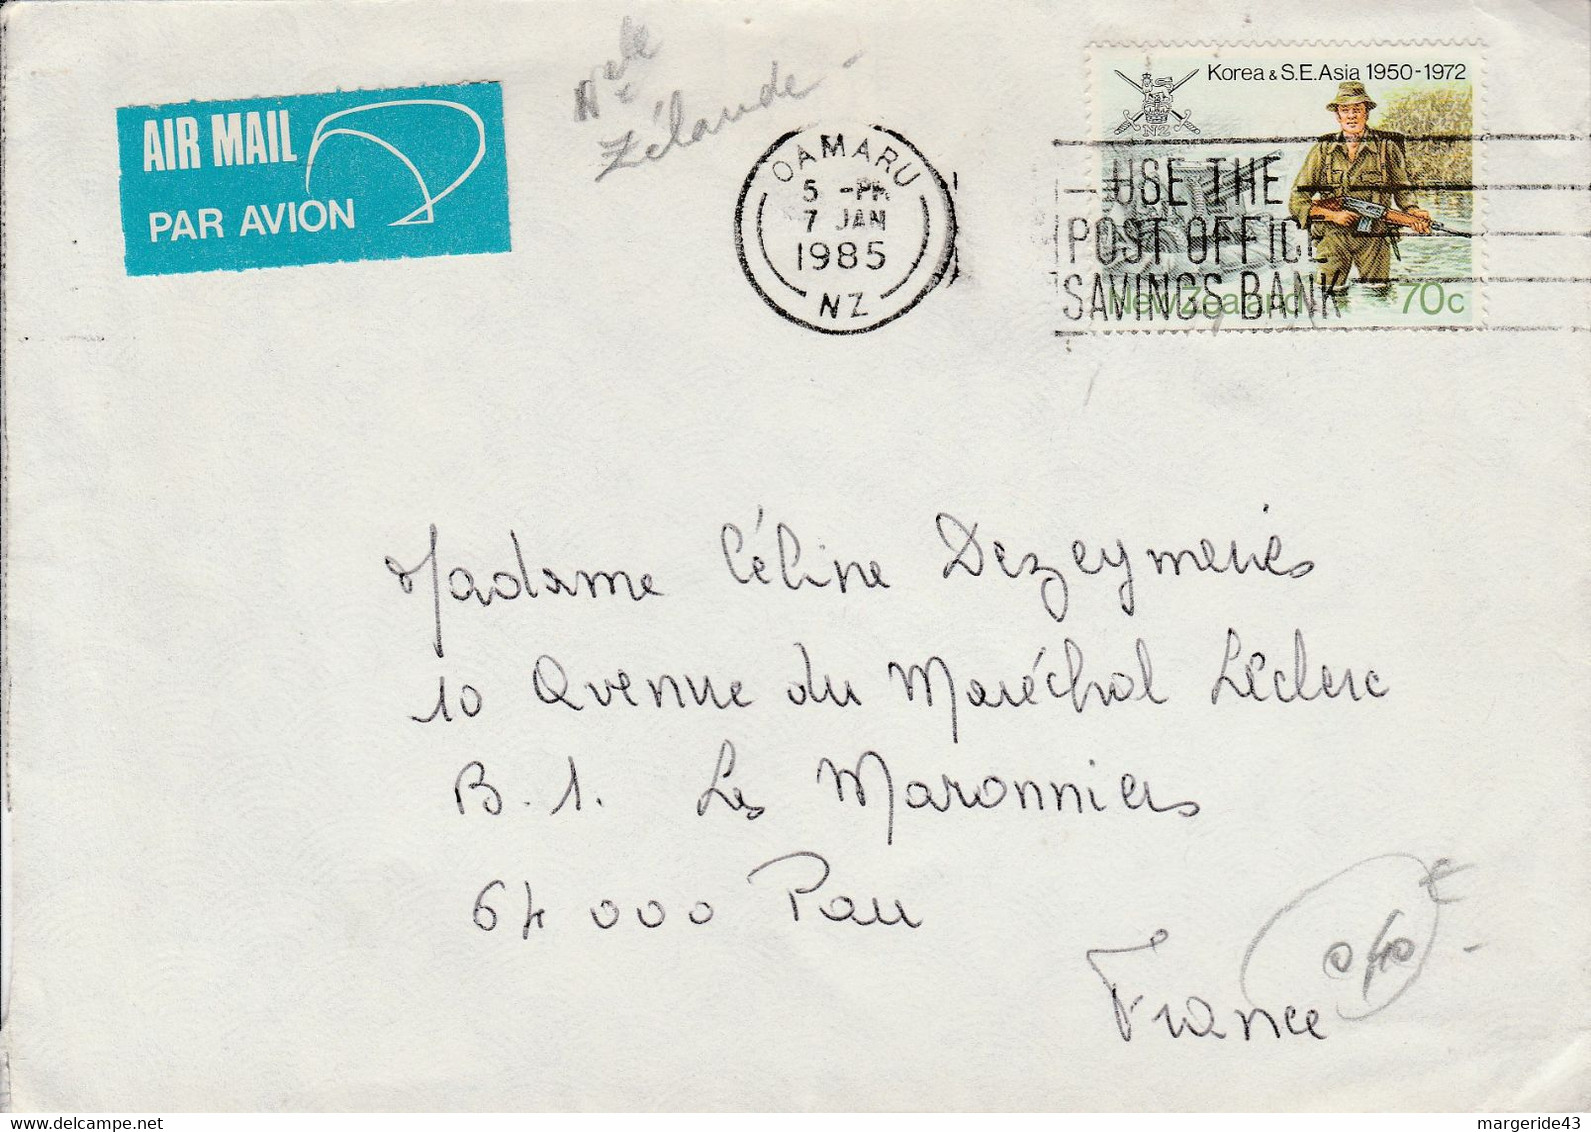 AIR MAIL
PAR AVION
Nelle
Zélande
OAMARU
5 -PM
7 JAN
1985
NZ
Korea & S.E. Asia 1950-1972
NZ
USE THE
POST OFFICE
SAVINGS BANK
New Zealand 70c
Madame Céline Dezeymeries
10 Avenue du Maréchal Leclerc
B.1. Les Maronniers
64 000 Pau
France
margeride43